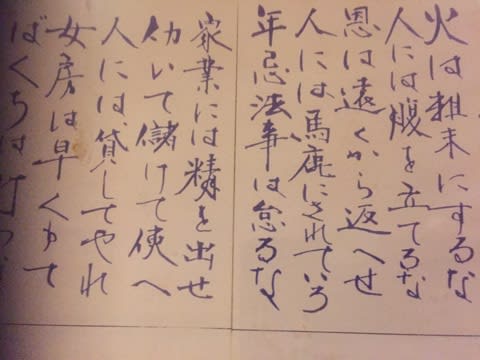 火は粗末にするな
人には腹を立てるな
恩は遠くから返へせ
人には馬鹿にされていろ
年忌法事は怠るな
家業には精を出せ
仂いて儲けて使へ
人には貸してやれ
女房は早くもて
ばくちは打つな